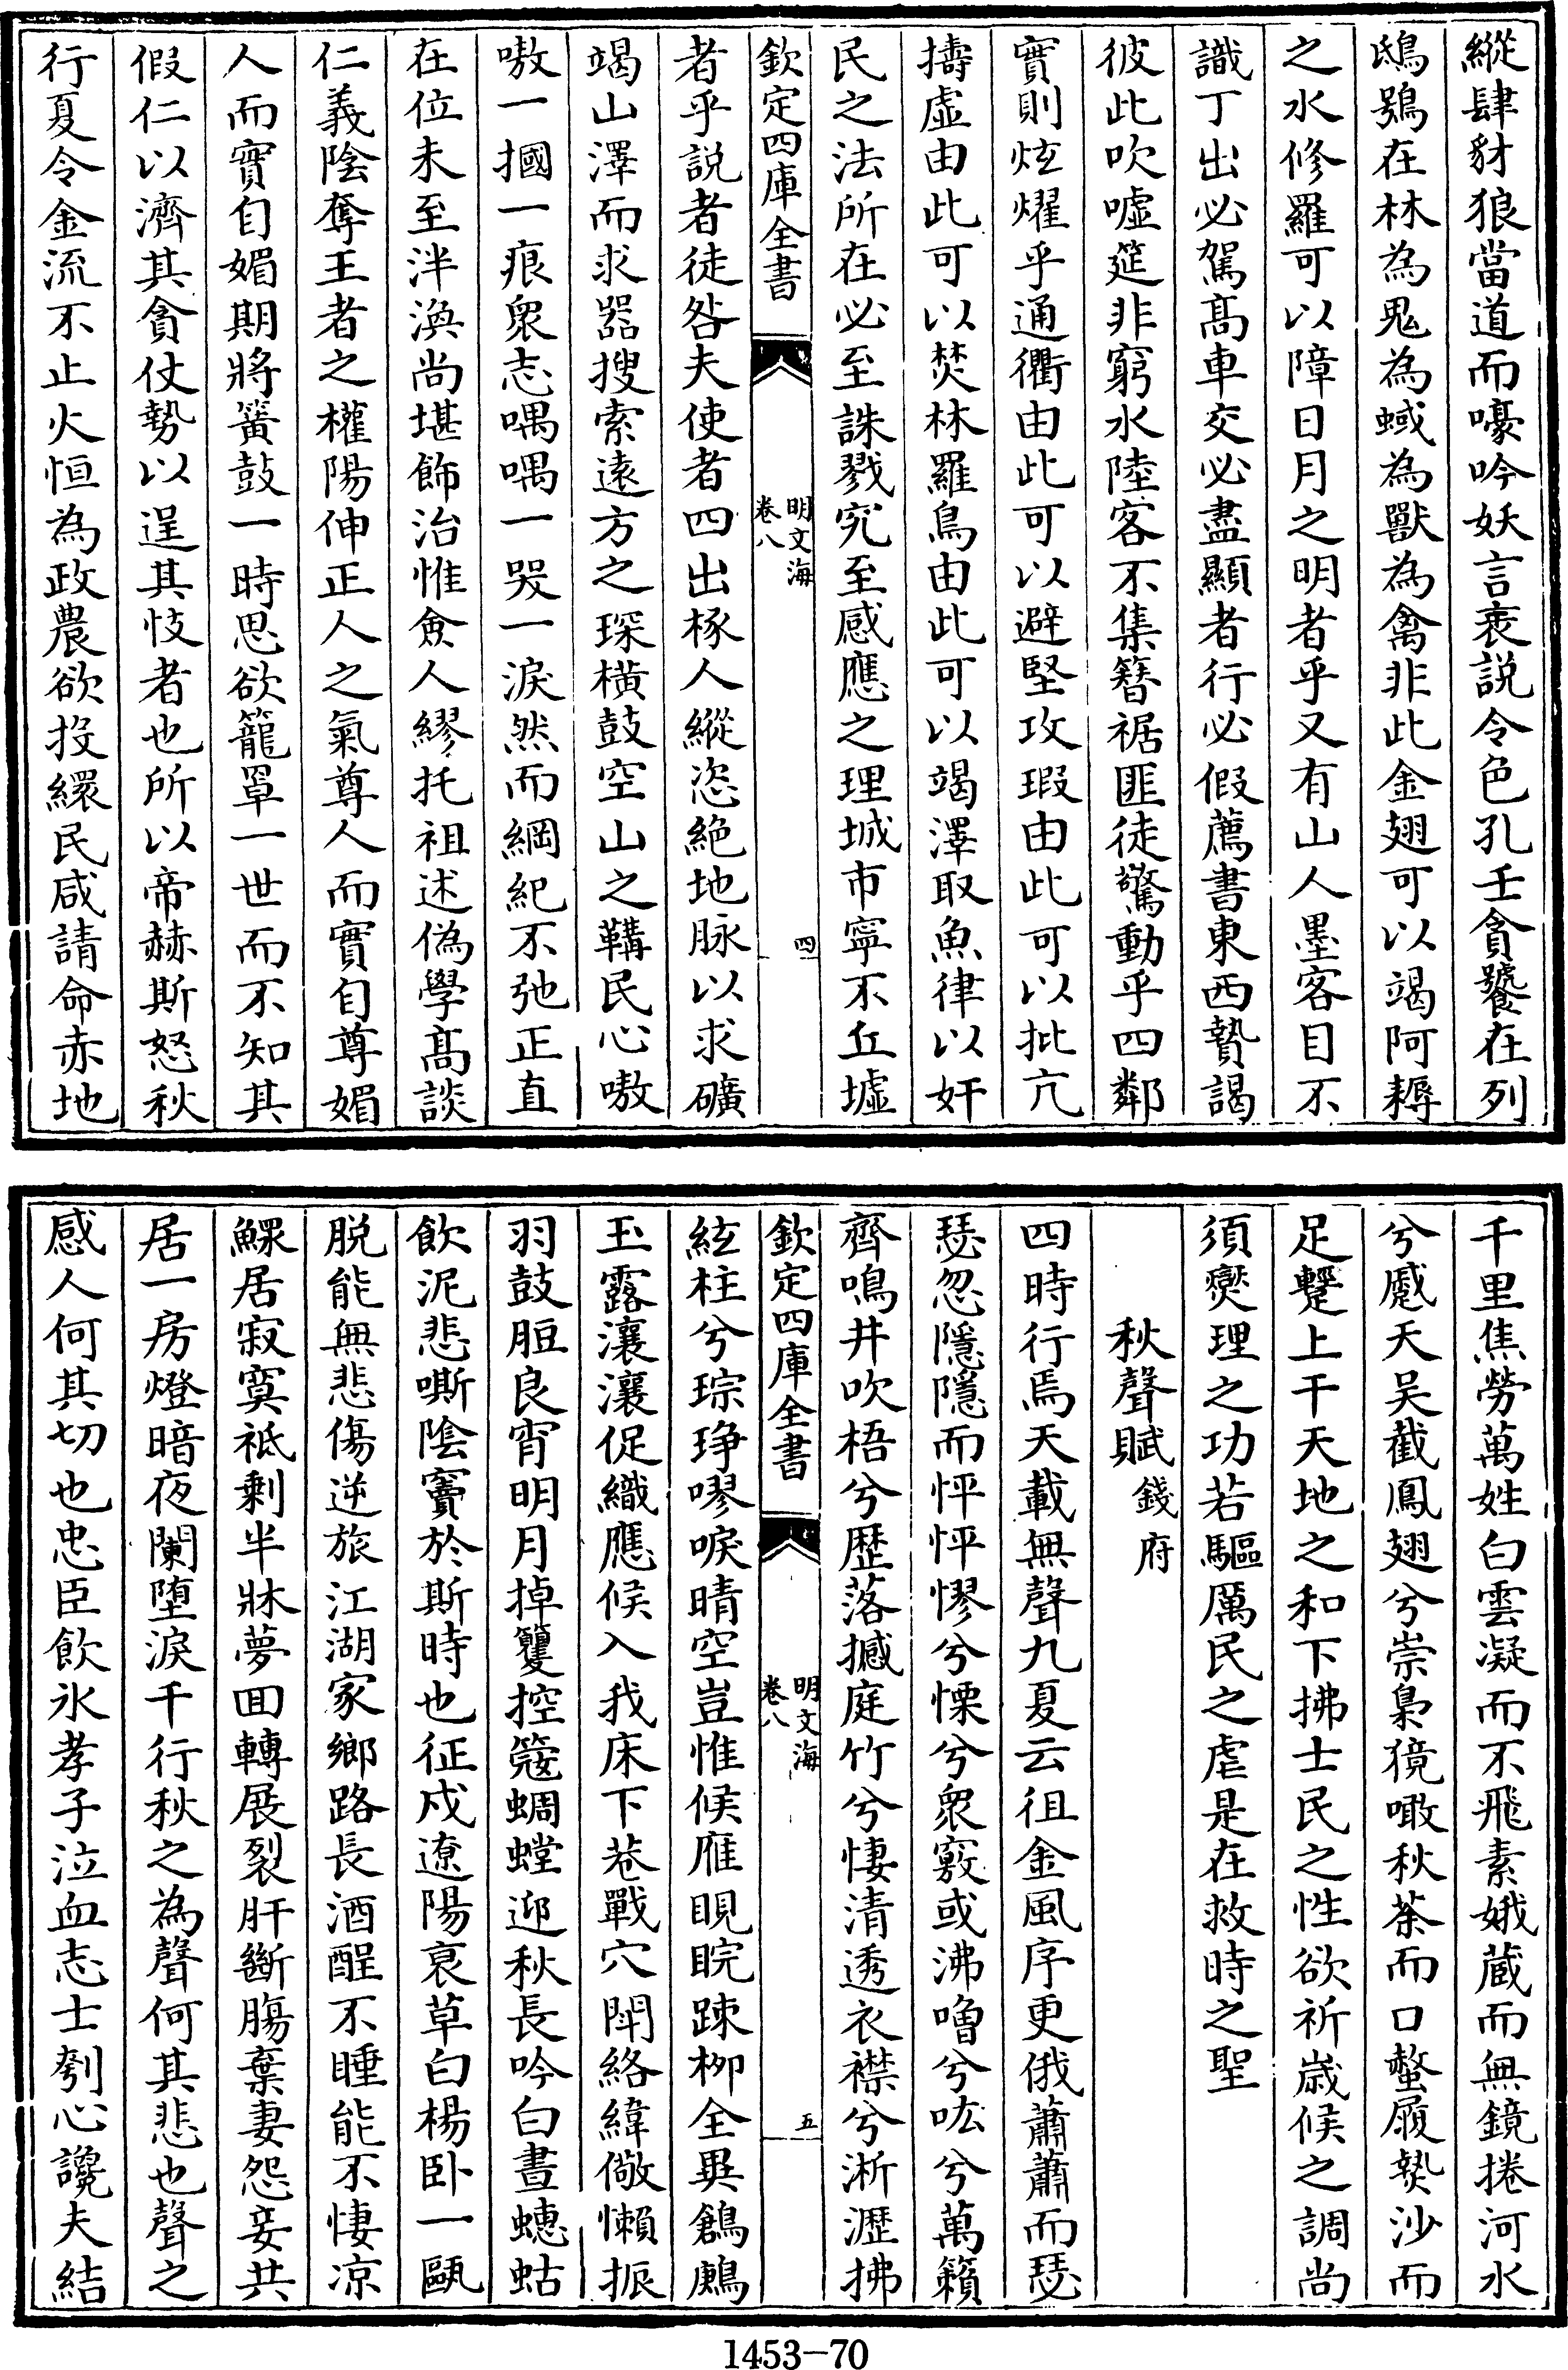 縱肆豺狼當道而嚎吟妖言衺説令色孔壬貪饕在列
鴟鴞在林為鬼為蜮為獸為禽非此金翅可以竭阿耨
之水修羅可以障日月之明者乎又有山人墨客目不
識丁出必駕髙車交必盡顯者行必假薦書東西贄謁
彼此吹噓筵非窮水陸客不集簪裾匪徒驚動乎四鄰
實則炫燿乎通衢由此可以避堅攻瑕由此可以批亢
擣虛由此可以焚林羅鳥由此可以竭澤取魚律以奸
民之法所在必至誅戮究至感應之理城市寧不丘墟
欽定四庫全書 明文海 卷八 四
者乎説者徒咎夫使者四出㧻人縱恣絶地脉以求礦
竭山澤而求器搜索遠方之琛横鼓空山之鞲民心嗷
嗷一摑一痕衆志喁喁一哭一淚然而綱紀不弛正直
在位未至泮渙尚堪飾治惟僉人繆托祖述偽學髙談
仁義陰奪王者之權陽伸正人之氣尊人而實自尊媚
人而實自媚期將簧鼓一時思欲籠罩一世而不知其
假仁以濟其貪仗勢以逞其忮者也所以帝赫斯怒秋
行夏令金流不止火恒為政農欲投繯民咸請命赤地
千里焦勞萬姓白雲凝而不飛素娥蔵而無鏡捲河水
兮㦧天吴截鳳翅兮崇梟獍噉秋荼而口螫履爇沙而
足躄上干天地之和下拂士民之性欲祈嵗候之調尚
須爕理之功若驅厲民之虐是在救時之聖
秋聲賦 錢府
四時行焉天載無聲九夏云徂金風序更俄蕭蕭而瑟
瑟忽隱隱而怦怦憀兮慄兮衆竅或沸嚕兮呍兮萬籟
齊鳴井吹梧兮歴落撼庭竹兮悽清透衣襟兮淅瀝拂
絃柱兮琮琤嘐唳晴空豈惟候雁睍睆踈栁全異鶬鷓
玉露瀼瀼促織應候入我床下巷戰穴閈絡緯儆懶振
羽鼓脰良宵明月掉籰控簆蜩螳迎秋長吟白晝蟪蛄
飲泥悲嘶陰竇於斯時也征戍遼陽哀草白楊卧一甌
脱能無悲傷逆旅江湖家鄉路長酒酲不睡能不悽凉
鰥居寂寞衹剩半牀夢囬轉展裂肝斷腸棄妻怨妾共
居一房燈暗夜闌堕淚千行秋之為聲何其悲也聲之
感人何其切也忠臣飲氷孝子泣血志士刳心讒夫結
1453-70